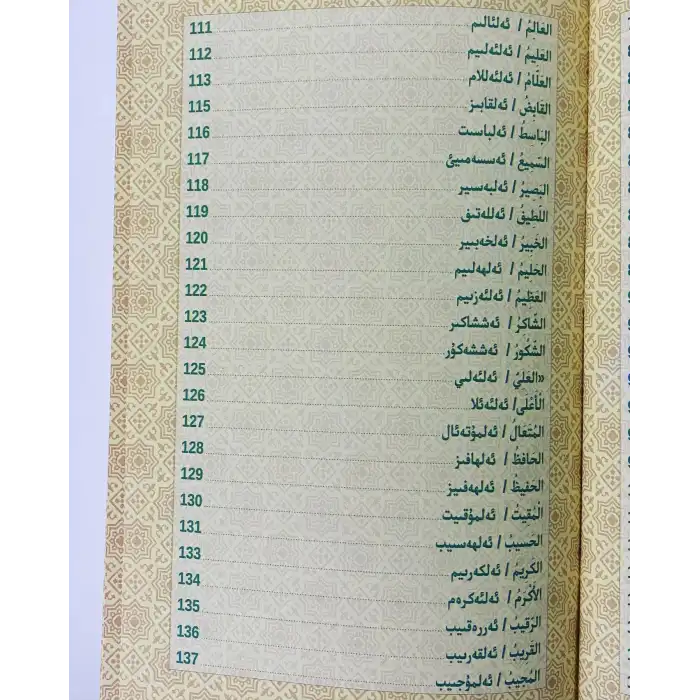 العَالِمُ / ئەلئالىم 111
العَلِيمُ / ئەلئەلىيم 112
العَلَّامُ / ئەلئەللام 113
القابِضُ / ئەلقابىز 115
البَاسطُ / ئەلباسىت 116
السَّمِيعُ / ئەسسەمىيئ 117
البَصِيرُ / ئەلبەسىير 118
اللطيفُ / ئەللەتىق 119
الخبيرُ / ئەلخەبىير 120
الحَلِيمُ / ئەلھەلىيم 121
العَظِيمُ / ئەلئەزىيم 122
الشَّاكِرُ / ئەششاكىر 123
الشَّكُورُ / ئەششەكۇر 124
«العَلِيُّ / ئەلئەلىي 125
الْأَعْلَى/ ئەلئەئلا 126
المُتَعَالُ / ئەلمۇتەئال 127
الحافظُ / ئەلھافىز 128
الحَفيظُ / ئەلھەفىيز 129
الْمُقِيتُ / ئەلمۇقىيت 130
الحَسِيبُ / ئەلھەسىيب 131
الكَرِيمُ / ئەلكەرىيم 133
الأَكْرَمُ / ئەلئەكرەم 134
الرّقِيبُ / ئەررەقىيب 135
القَرِيبُ / ئەلقەرىيب 136
المُجيبُ / ئەلمۇجىيب 137